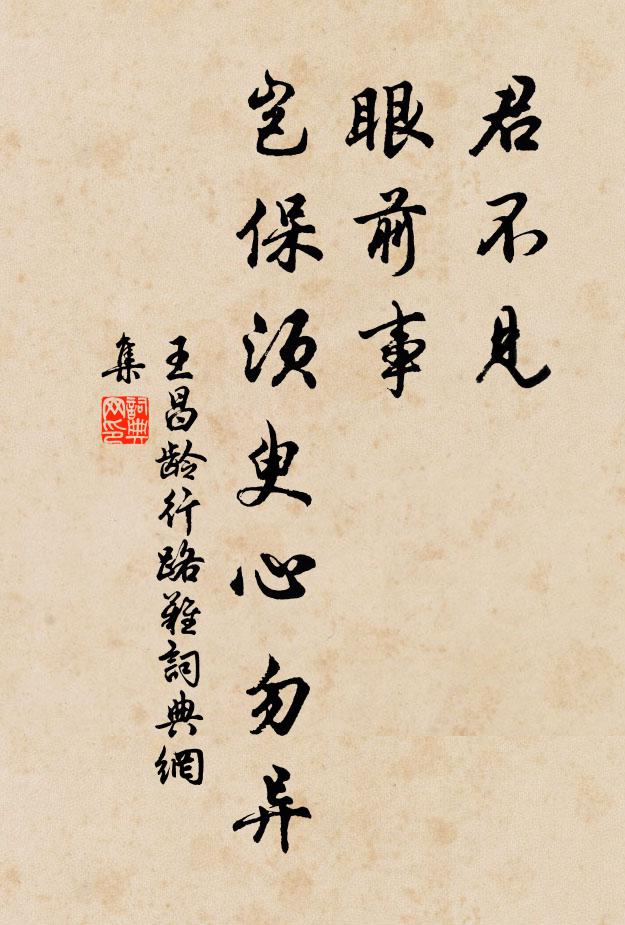 君不见
眼前事
岂保须臾心勿异
王昌龄行路难詞典網
集
詞典
网印